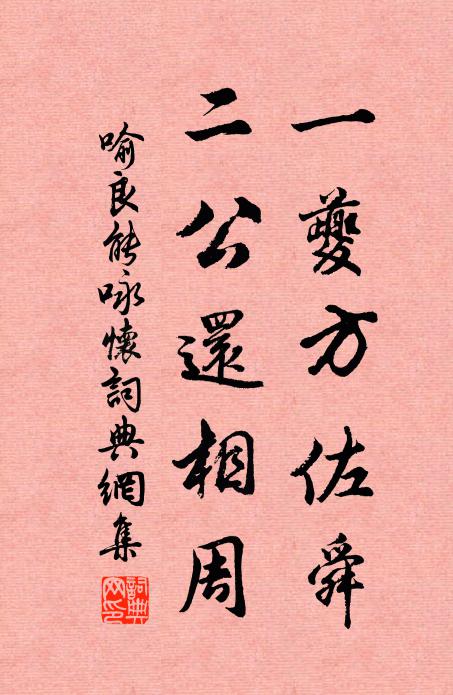 一夔方佐舜
二公還相周
喻良能咏懷詞典網集
詞典网印